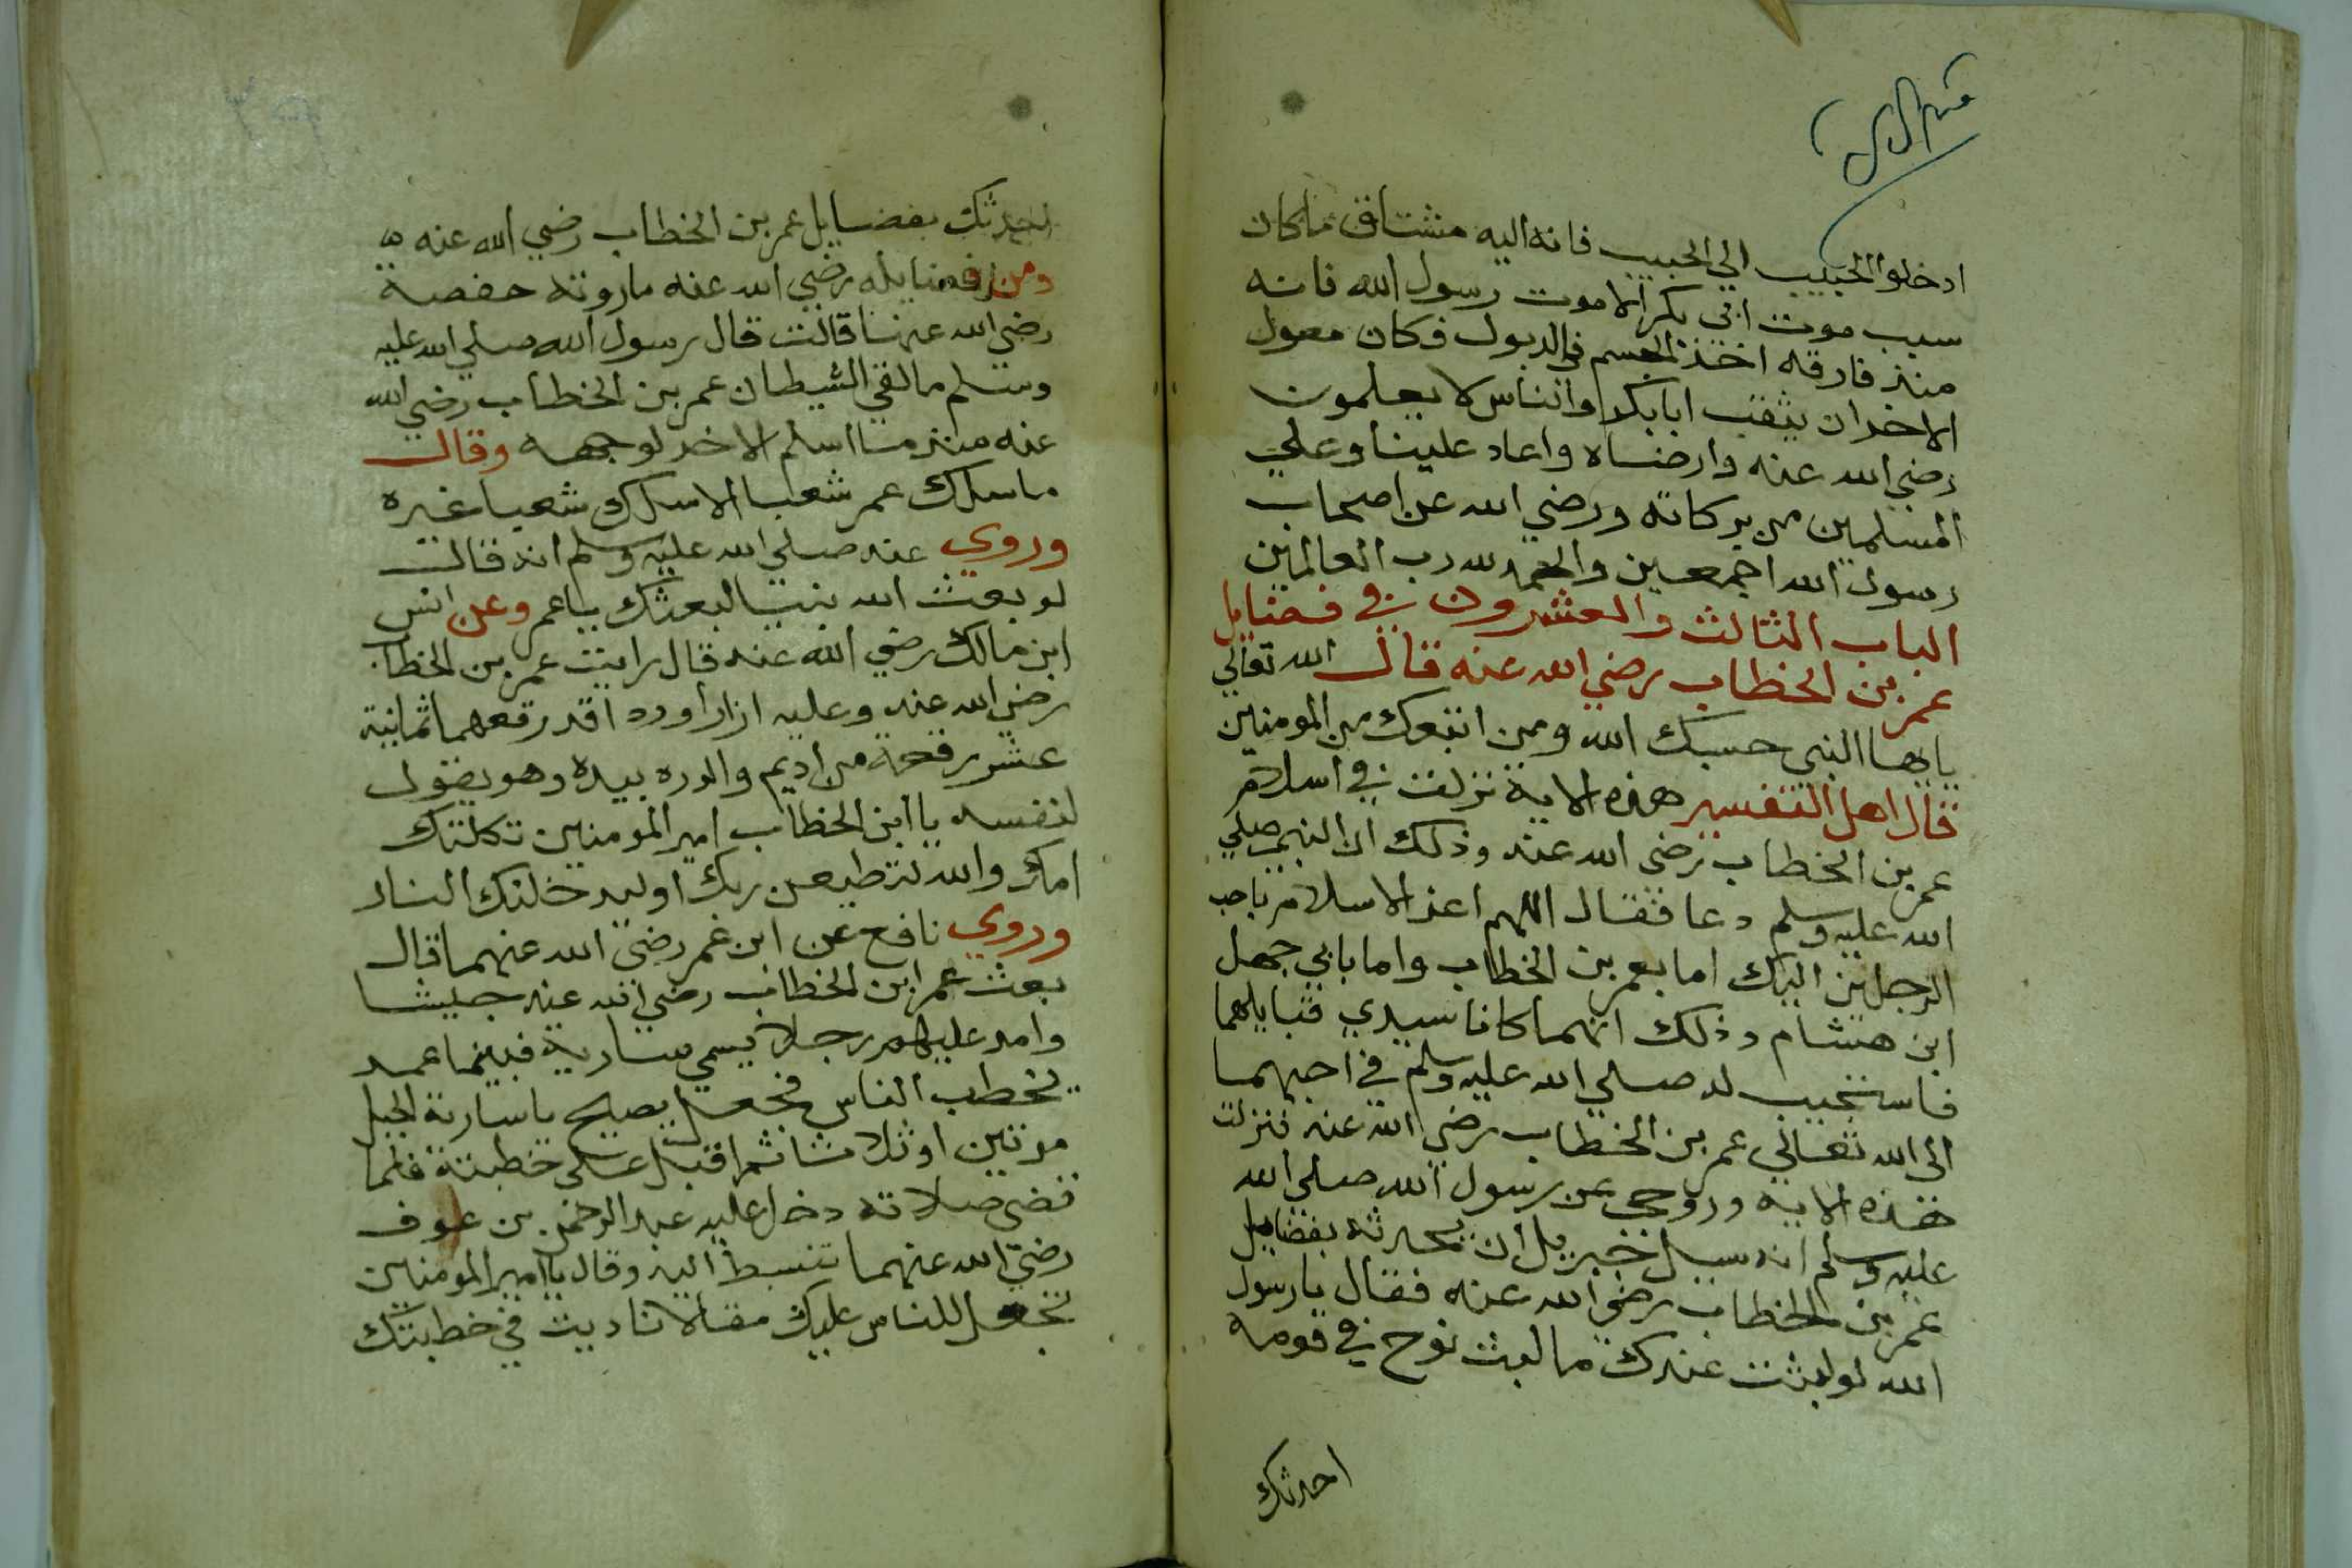 ادخلوا الحبيب الي الحبيب فانه اليه مشتاق ما كان
سبب موت ابي بكر الا موت رسول الله فانه
منذ فارقه اخذ الجسم في الدبول فكان معول
الاحزان ينقب ابا بكر والناس لا يعلمون
رضي الله عنه وارضاه واعاد علينا وعلي
المسلمين من بركاته ورضي الله عن اصحاب
رسول الله اجمعين والحمد لله رب العالمين
الباب الثالث والعشرون في فضايل
عمر بن الخطاب رضي الله عنه قال الله تعالي
يا ايها النبي حسبك الله ومن اتبعك من المومنين
قال اهل التفسير هذه الاية نزلت في اسلام
عمر بن الخطاب رضي الله عنه وذلك ان النبي صلي
الله عليه وسلم دعا فقال اللهم اعز الاسلام باحب
الرجلين اليك اما بعمر بن الخطاب واما بابي جهل
ابن هشام وذلك انهما كانا سيدي قبايلهما
فاستجيب له صلي الله عليه وسلم في احبهما
الي الله تعالي عمر بن الخطاب رضي الله عنه فنزلت
هذه الاية وروي عن رسول الله صلي الله
عليه وسلم انه سيل جبريل ان يحدثه بفضايل
عمر بن الخطاب رضي الله عنه فقال يا رسول
الله لو لبثت عندك ما لبث نوح في قومه
احدثك
احدثك بفضايل عمر بن الخطاب رضي الله عنه
ومن فضايله رضي الله عنه ما روته حفصة
رضي الله عنها قالت قال رسول الله صلي الله عليه
وسلم ما لقي الشيطان عمر بن الخطاب رضي الله
عنه منذ ما اسلم الا خر لوجهه وقال
ما سلك عمر شعبا الا سلك شعبا غيره
وروي عنه صلي الله عليه وسلم انه قال
لو بعث الله نبيا لبعثك يا عمر وعن انس
ابن مالك رضي الله عنه قال رايت عمر بن الخطاب
رضي الله عنه وعليه ازارا وردا قد رقعهما ثمانية
عشر رقعة من اديم والدره بيده وهو يقول
لنفسه يا ابن الخطاب امير المومنين ثكلتك
امك والله لتطيعن ربك او ليدخلنك النار
وروي نافع عن ابن عمر رضي الله عنهما قال
بعث عمر ابن الخطاب رضي الله عنه جيشا
وامر عليهم رجلا يسمي سارية فبينما عمر
يخطب الناس فجعل يصيح يا سارية الجبل
مرتين او ثلاثا ثم اقبل علي خطبته فلما
قضي صلاته دخل عليه عبد الرحمن بن عوف
رضي الله عنهما تنبسط اليه وقال يا امير المومنين
تجعل للناس عليك مقالا ناديت في خطبتك